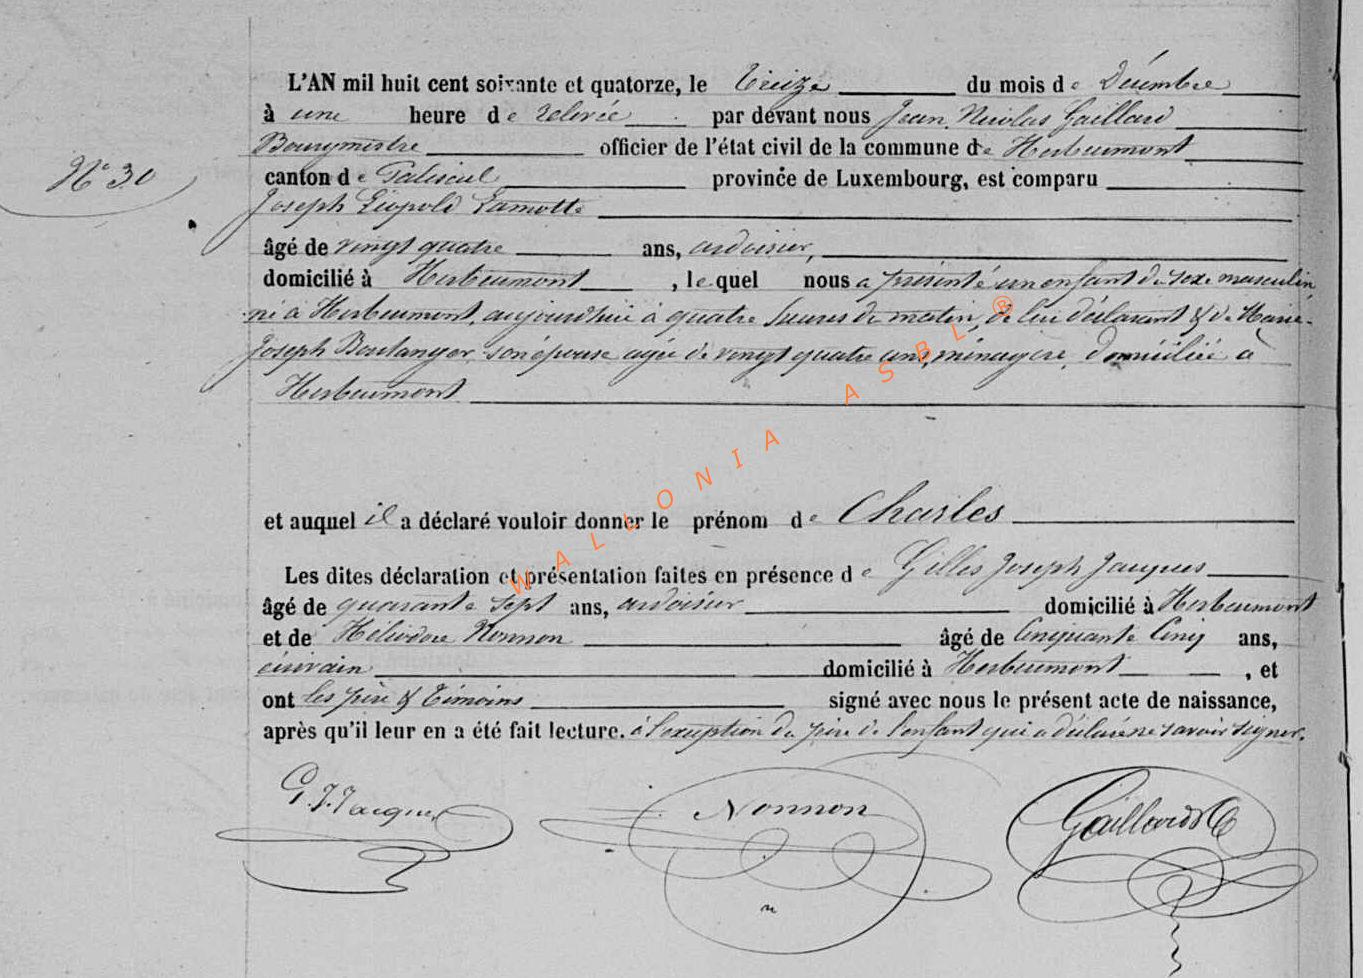 L'AN mil huit cent soixante et quatorze, le treize du mois de Décembre
à une heure de relevée par devant nous Jean Nicolas Gaillard
Bourgmestre officier de l'état civil de la commune de Herbeumont
N° 30
canton de Paliseul province de Luxembourg, est comparu
Joseph Léopold Lamotte
âgé de vingt quatre ans, ardoisier,
domicilié à Herbeumont, lequel nous a présenté un enfant du sexe masculin
né à Herbeumont, aujourd'hui à quatre heures du matin, de lui déclarant & de Marie-
Joseph Boulanger son épouse agée de vingt quatre ans, ménagère, domiciliée à
Herbeumont
et auquel il a déclaré vouloir donner le prénom de Charles
Les dites déclaration et présentation faites en présence de Gilles Joseph Jacques
âgé de quarante sept ans, ardoisier domicilié à Herbeumont
et de Héliodore Nonnon âgé de Cinquante Cinq ans,
écrivain domicilié à Herbeumont, et
ont les père & témoins signé avec nous le présent acte de naissance,
après qu'il leur en a été fait lecture. à l'exception du père de l'enfant qui a déclaré ne savoir signer.
G. J. Jacques Nonnon Gaillard
WALLONIA ASBL ®